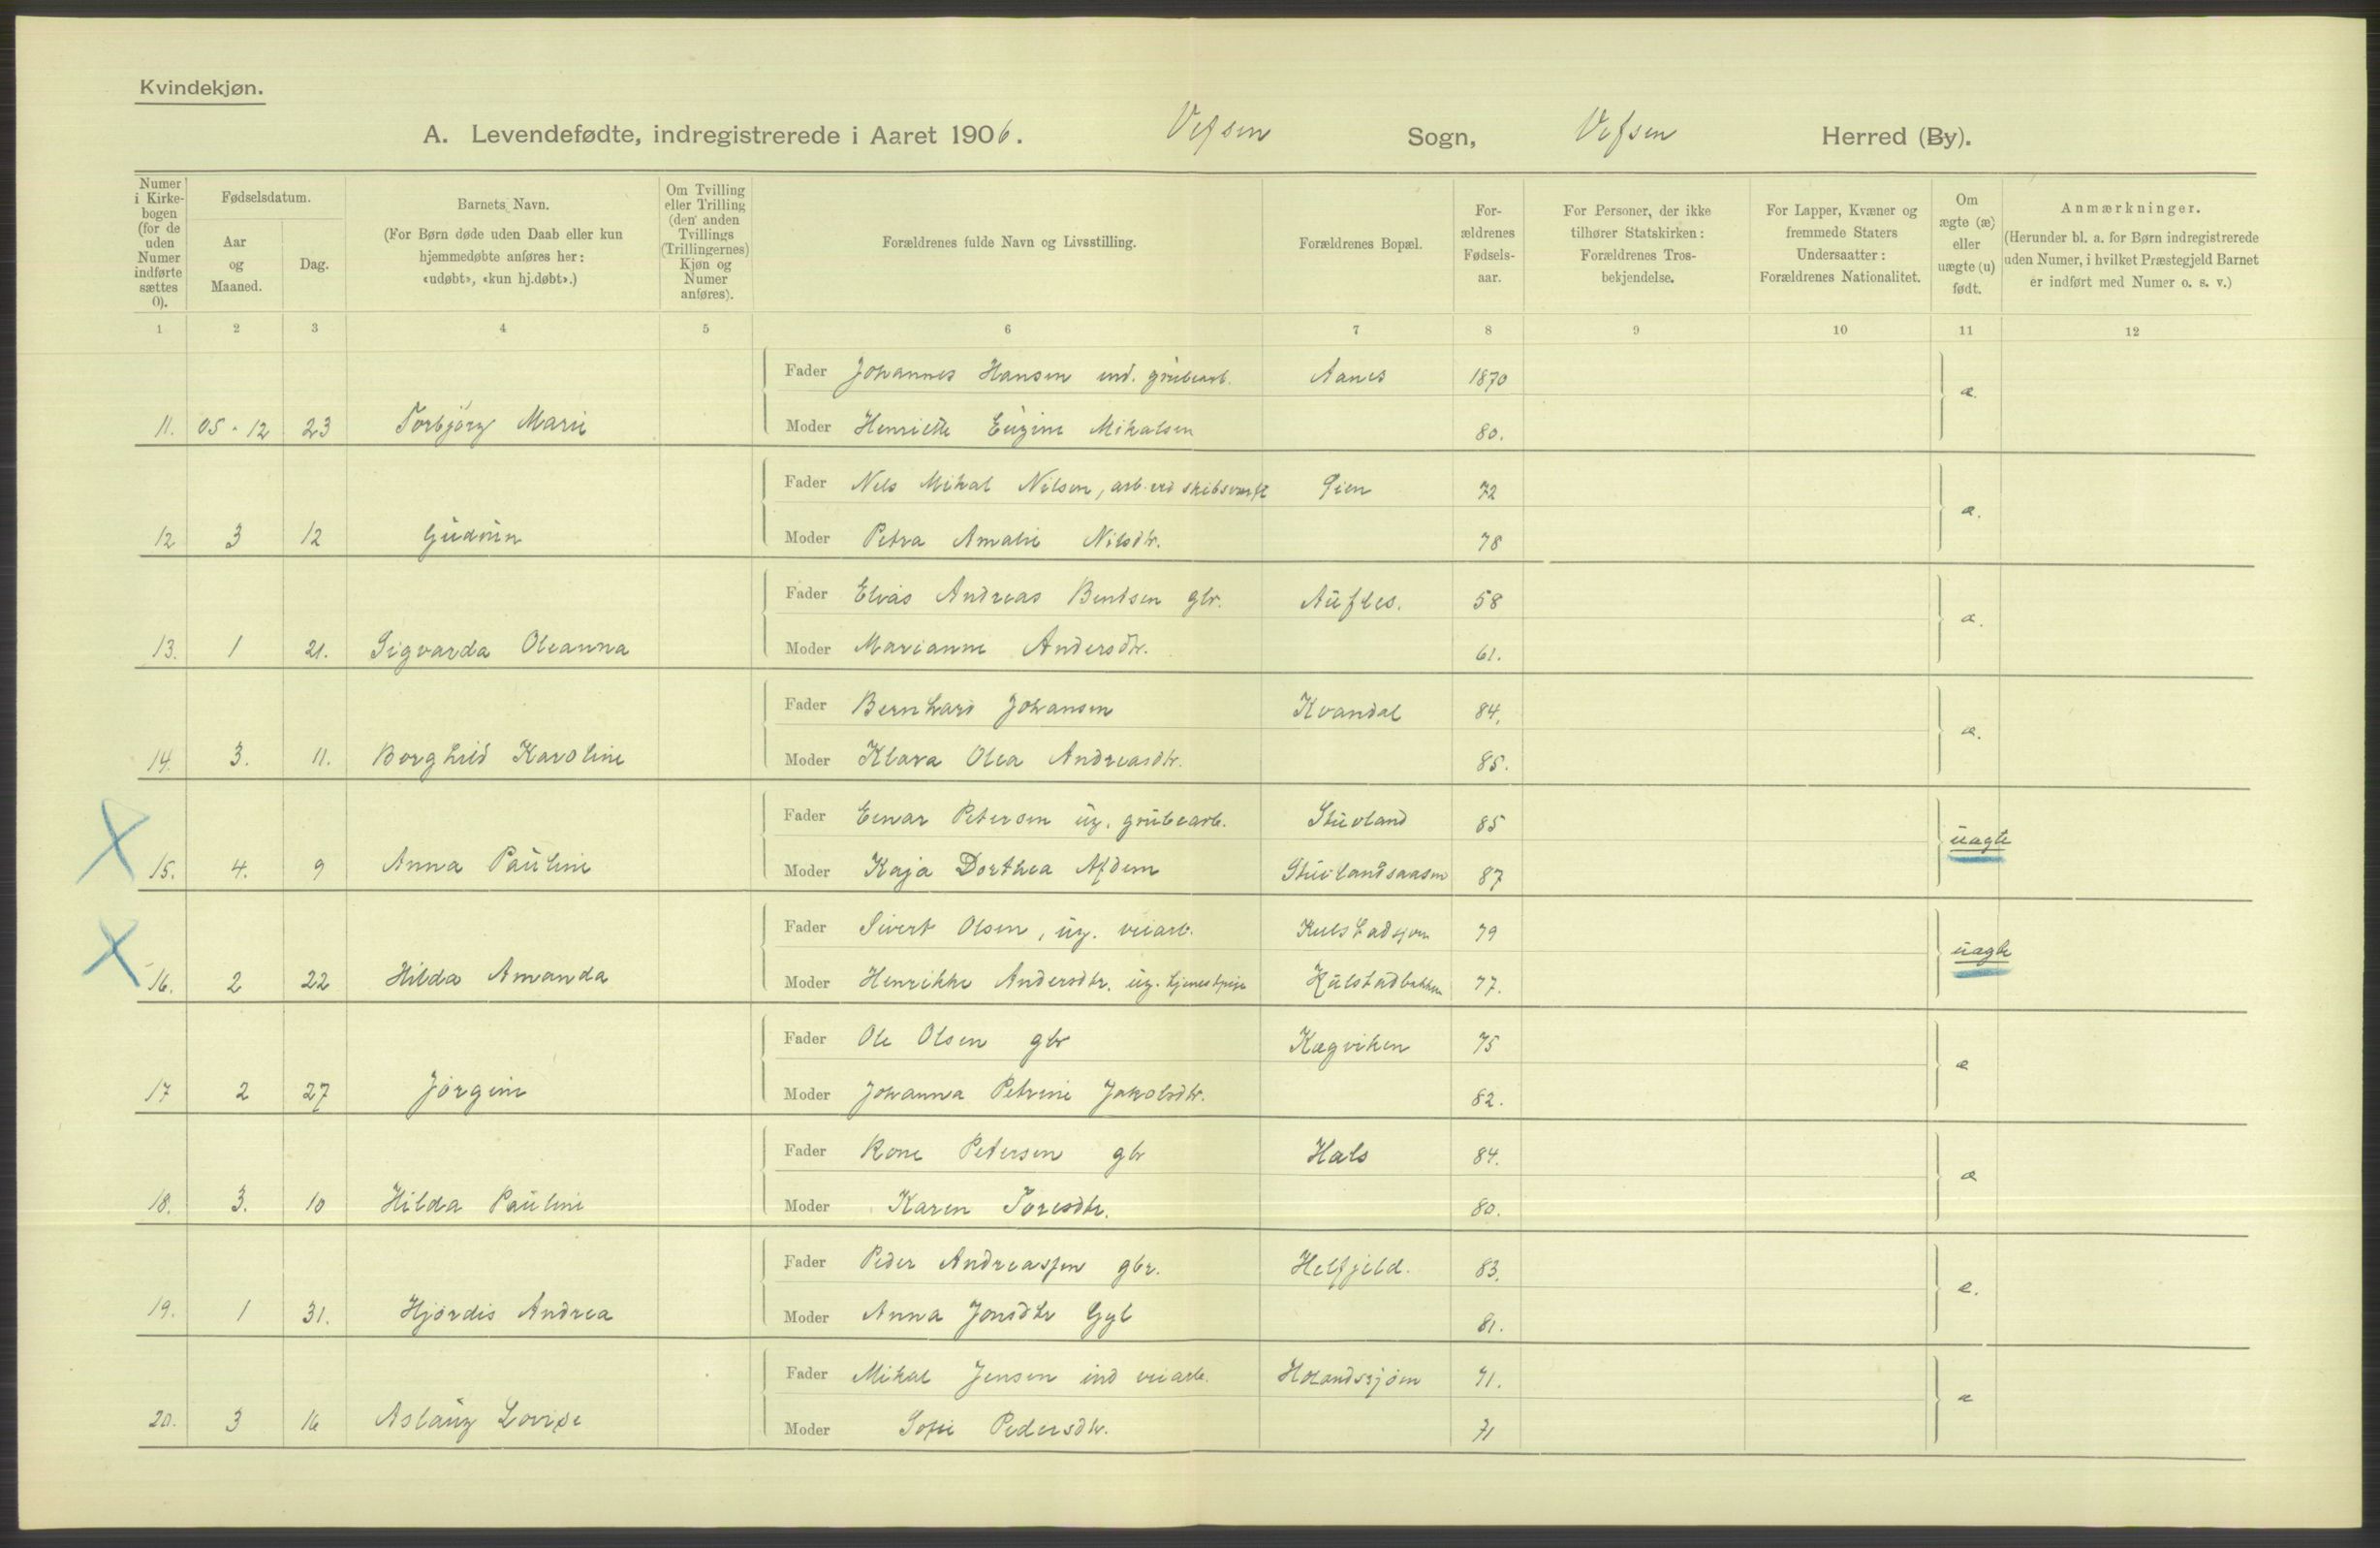 Kvindekjøn.
A. Levendefødte, indregistrerede i Aaret 1906. Vefsen Sogn, Vefsen Herred (By).
Numer i Kirkebogen (for de uden Numer indførte sættes 0).
Fødselsdatum.
Aar og Maaned.
Dag.
Barnets Navn.
(For Børn døde uden Daab eller kun hjemmedøbte anføres her: «udøbt», «kun hj.døbt».)
Om Tvilling eller Trilling (den anden Tvillings (Trillingernes) Kjøn og Numer anføres).
Forældrenes fulde Navn og Livsstilling.
Forældrenes Bopæl.
Forældrenes Fødselsaar.
For Personer, der ikke tilhører Statskirken: Forældrenes Trosbekjendelse.
For Lapper, Kvæner og fremmede Staters Undersaatter: Forældrenes Nationalitet.
Om ægte (æ) eller uægte (u) født.
Anmærkninger.
(Herunder bl. a. for Børn indregistrerede uden Numer, i hvilket Præstegjeld Barnet er indført med Numer o. s. v.)
1 2 3 4 5 6 7 8 9 10 11 12
Fader Johannes Hansen ind. grubearb. Aanes 1870 æ.
11. 05-12 23 Torbjørg Marie Moder Henriette Eugine Mikalsen 80.
Fader Nels Mikal Nilsen, arb. ved skibsværft Øien 72 æ.
12 3 12 Gudrun Moder Petra Amalie Nilsdtr. 78
Fader Elias Andreas Bentsen gbr. Aufles. 58 æ.
13. 1 21. Sigvarda Oleanna Moder Marianne Andersdtr. 61.
Fader Bernhard Johansen Kvandal 84. æ.
14. 3. 11. Borghild Karoline Moder Klara Olea Andreasdtr. 85.
Fader Einar Petersen ug. grubearb. Stuvland 85 uægte
15. 4. 9 Anna Pauline Moder Kaja Dorthea Afdem Stuvlandsaasen 87
Fader Sivert Olsen, ug. veiarb. Kulstadsjøen 79 uægte
16. 2 22 Hilda Amanda Moder Henrikke Andersdtr. ug. tjenestpige Kulstadbakken 77.
Fader Ole Olsen gbr Kægviken 75 æ
17 2 27 Jørgine Moder Johanna Petrine Jakobsdtr. 82.
Fader Kone Petersen gbr Hals 84. æ
18. 3. 10 Hilda Pauline Moder Karen Toresdtr. 80.
Fader Peder Andreassen gbr. Helfjeld. 83. æ.
19. 1 31. Hjørdis Andrea Moder Anna Jonsdtr Gyl 81.
Fader Mikal Jensen ind veiarb. Holandsjøen 71. æ
20. 3 16 Aslaug Lovise Moder Sofie Pedersdtr. 71